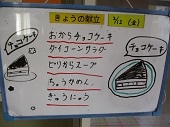 きょうの献立 3/12 (金)
おからチョコケーキ
ダイコーンサラダ
ピリからスープ
ちゅうかめん
ぎゅうにゅう
チョコケーキ
チョコケーキ